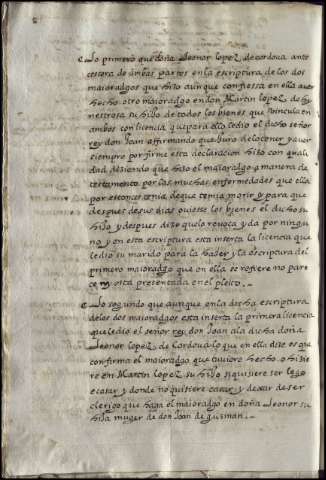 Lo primero que doña Leonor lopez de cordoua ante
cesora de ambas partes en la escriptura de los dos
maioradgos que hizo aunque confiessa en ella auer
hecho otro maioradgo en don Martin lopez de hy
nestrosa su hijo de todos los bienes que vincula en
ambos con licencia que para ello dio el dicho señor
rey don Joan afirmando que huuo de la tener y auer
siempre por firme esta declaracion hizo con quali
dad disiendo que hizo el maioradgo a manera de
testamento por las muchas enfermedades que ella
por estonces tenia de que temia morir y para que
despues de sus dias ouiesse los bienes el dicho su
hijo y despues dize que lo reuoca y da por ningu
no y en esta escriptura esta inserta la licencia que
le dio su marido para la haser y la escriptura del
primero maioradgo que en ella se refiere no pare
ce ni esta presentada en el pleito.
Lo segundo que aunque en la dicha escriptura
de los dos maioradgos esta inserta la primera licencia
que le dio el señor rey don Joan a la dicha doña
Leonor lopez de Cordoua lo que en ella dize es que
confirma el maioradgo que tuuiere hecho o hisie
re en Martin lopez su hijo si quisiere ser lego
e casar y donde no quisiere casar y dexar de ser
clerigo que haga el maioradgo en doña Leonor su
hija muger de don Joan de guzman.